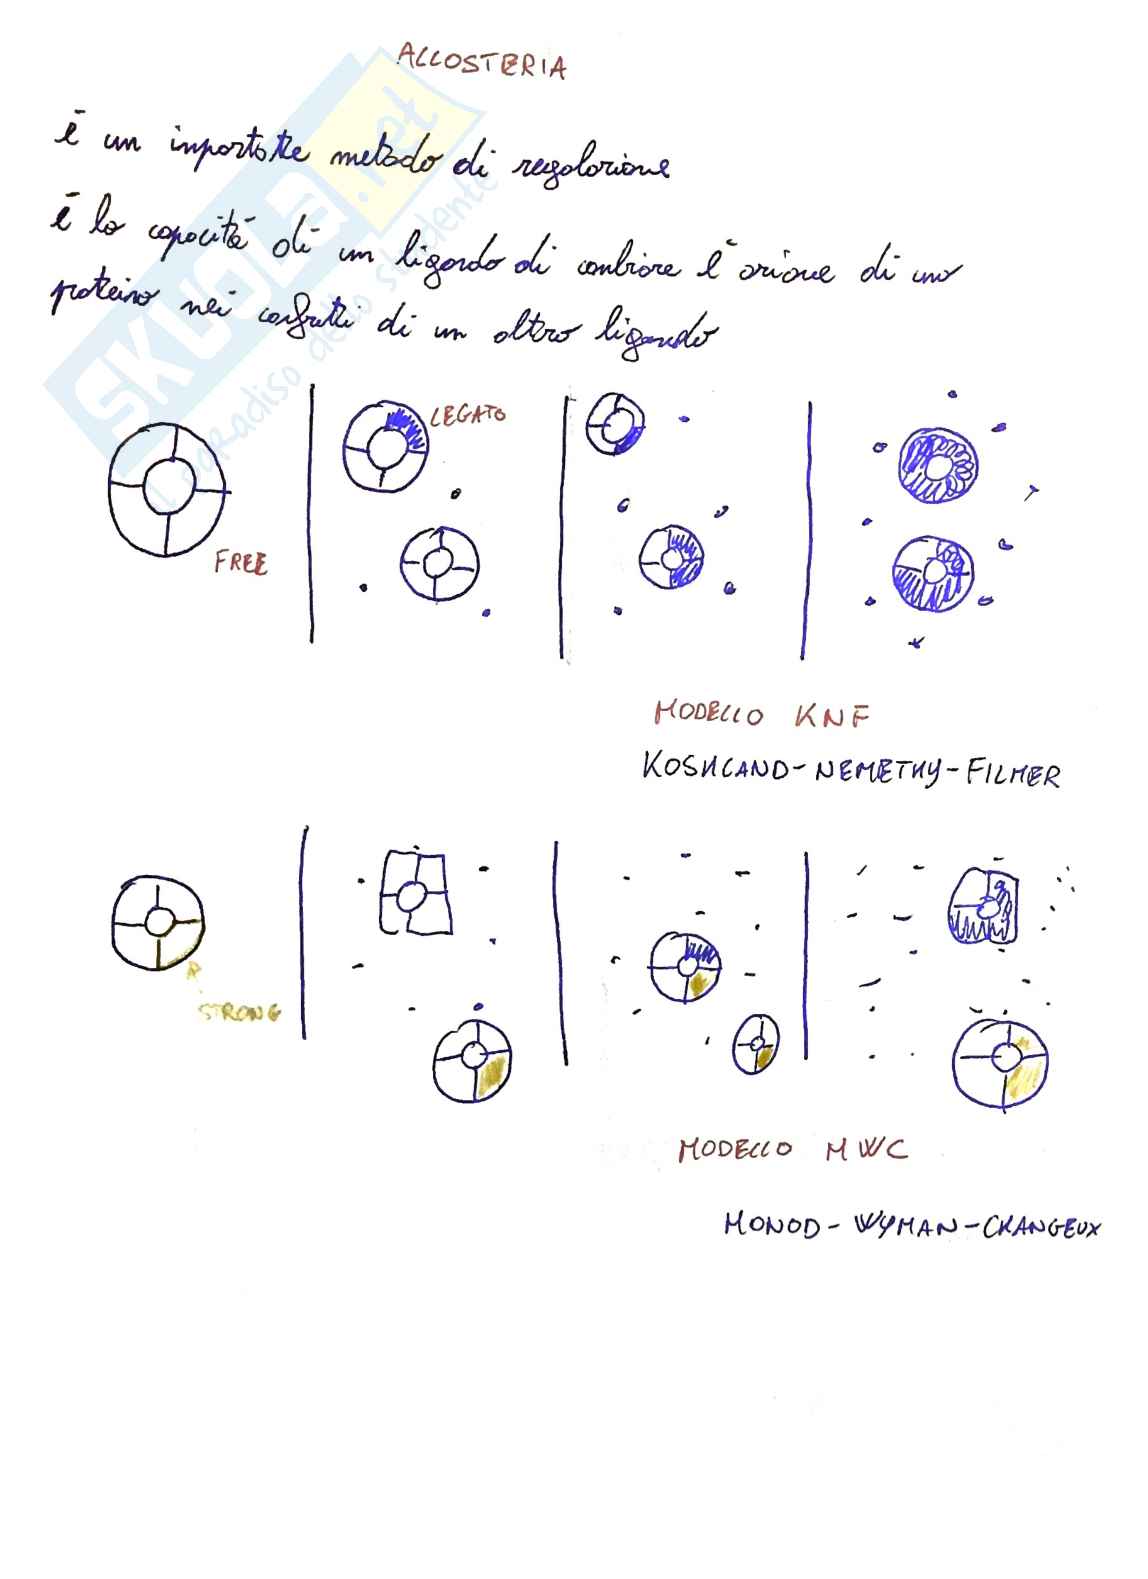 ALLOSTERIA
è un importante metodo di regolazione
è la capacità di un ligando di cambiare l'azione di una
proteina nei confronti di un altro ligando
LEGATO
FREE
MODELLO KNF
KOSHLAND-NEMETHY-FILMER
STRONG
MODELLO MWC
MONOD-WYMAN-CHANGEUX
SKUOLA.net
il paradiso dello studente